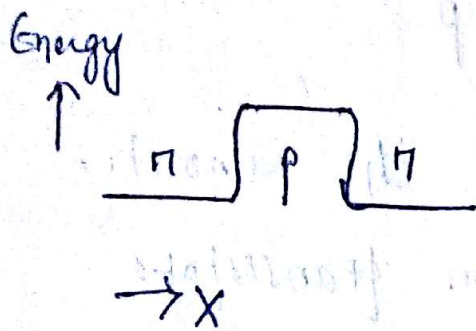 Energy
n p n
→ X